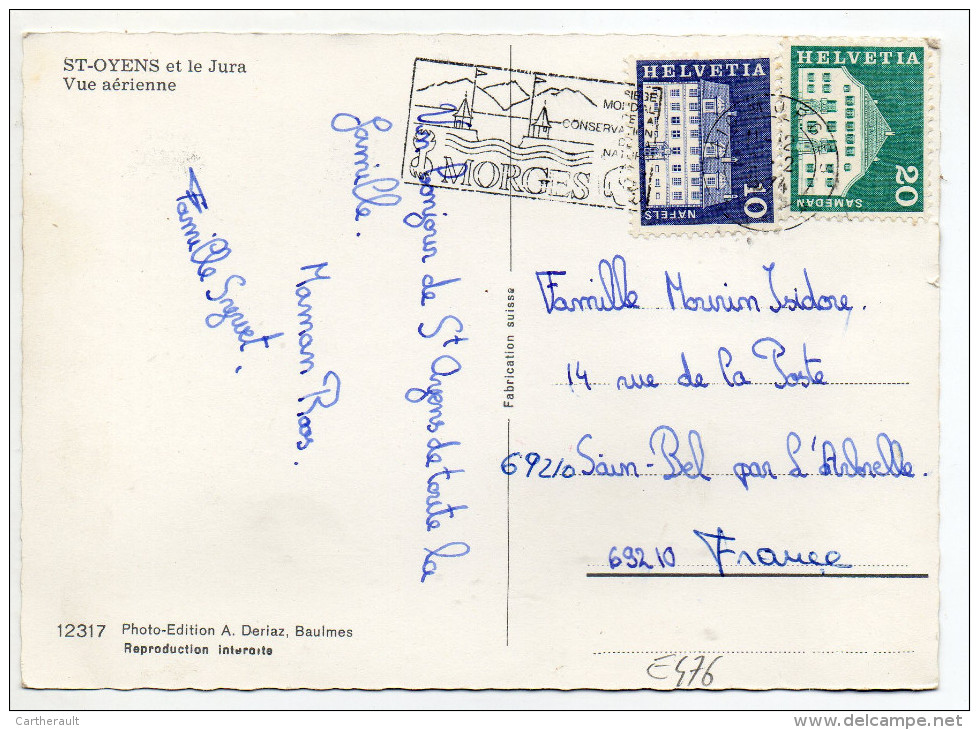 ST-OYENS et le Jura
Vue aérienne
MORGES
SIÈGE
MONDIAL
DE LA
CONSERVATION
DE LA
NATURE
HELVETIA
10
NÄFELS
HELVETIA
20
SAMEDAN
bonjour de St Oyens de toute la
famille.
Maman Roos.
Famille
Fabrication suisse
Famille Mourin Isidore.
14 rue de la Poste
69210 Sain-Bel par L'Arbrelle.
69210 France
12317 Photo-Edition A. Deriaz, Baulmes
Reproduction interdite
E476
Cartherault
www.delcampe.net